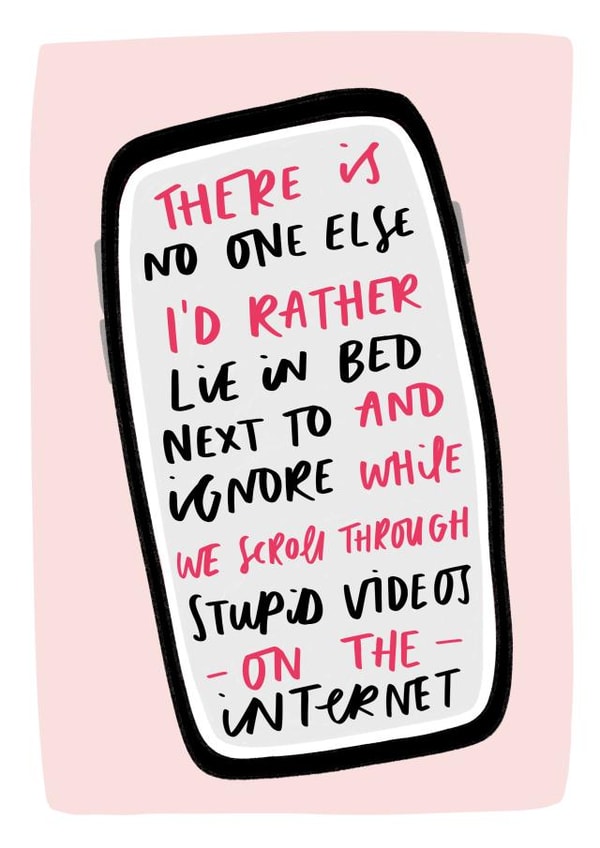 THERE is
NO ONE ELSE
I'D RATHER
LiE iN BED
NEXT TO AND
iGNORE WHiLE
WE SCROll THROUGH
STUPiD ViDEOS
- ON THE -
iNTERNET